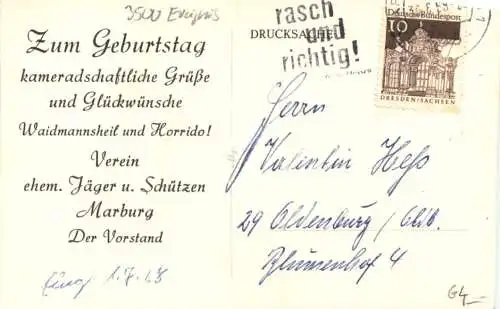 3500 Ereignis
Zum Geburtstag
kameradschaftliche Grüße
und Glückwünsche
Waidmannsheil und Horrido!
Verein
ehem. Jäger u. Schützen
Marburg
Der Vorstand
1.7.68
DRUCKSACHE
rasch
und
richtig!
Deutsche Bundespost
10
DRESDEN/SACHSEN
Herrn
Valentin Heß
29 Oldenburg/Oldb.
Blumenhof 4
G4,-